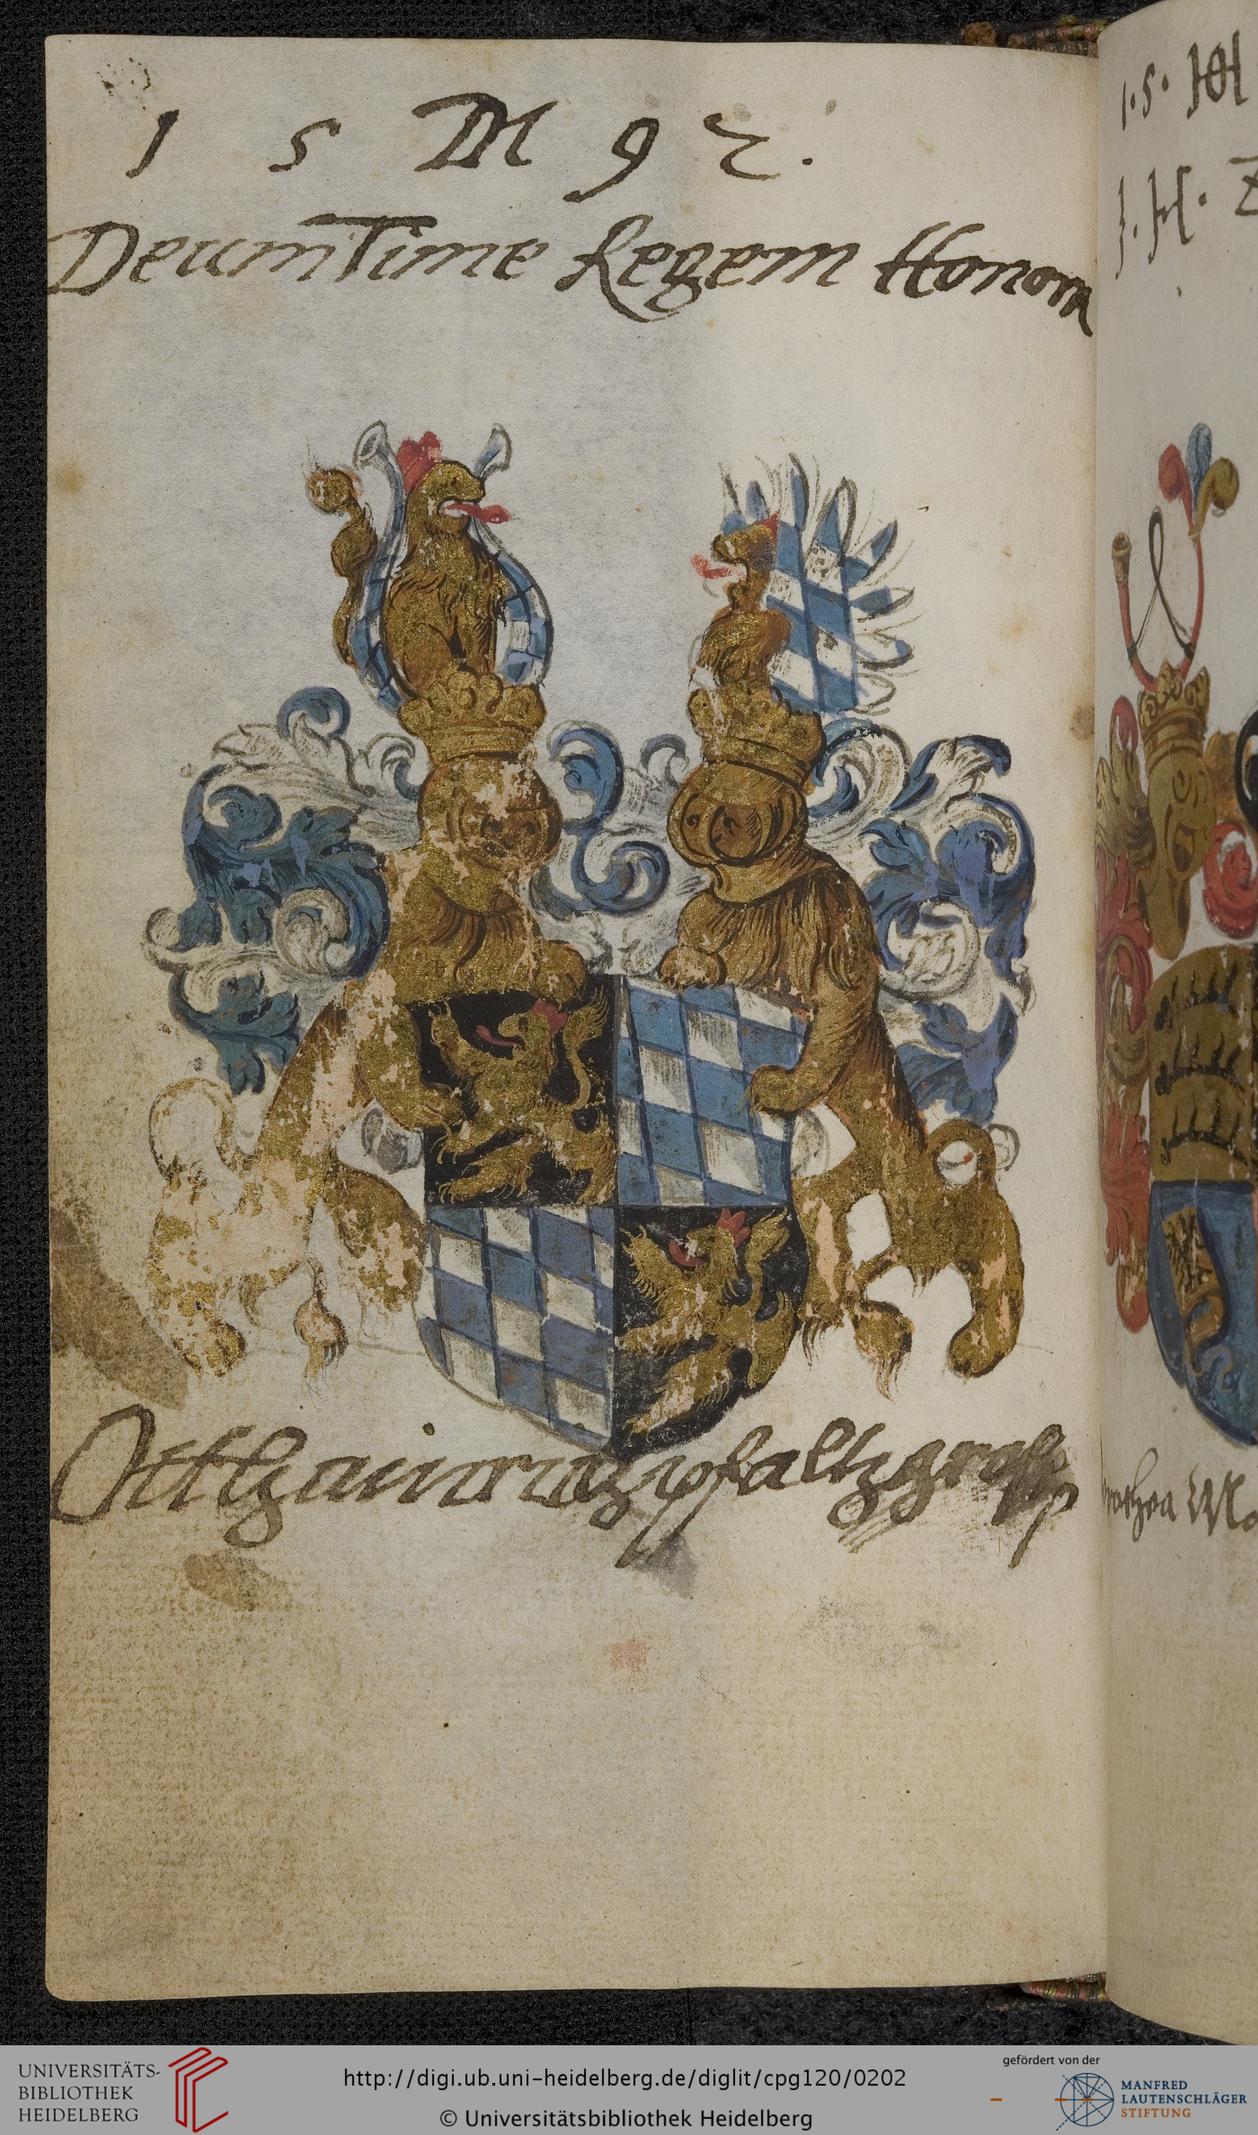 1 5 M 9 2.
Deum Time Regem Honora
Otthainrich pfaltzgraff
1·5· HA
J·H· Z
UNIVERSITÄTS-
BIBLIOTHEK
HEIDELBERG
http://digi.ub.uni-heidelberg.de/diglit/cpg120/0202
© Universitätsbibliothek Heidelberg
gefördert von der
MANFRED
LAUTENSCHLÄGER
STIFTUNG